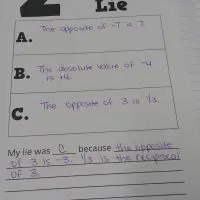 2
Lie
A. The opposite of -7 is 7.
B. The absolute value of -4
is +4.
C. The opposite of 3 is 1/3.
My lie was C because the opposite
of 3 is -3. 1/3 is the reciprocal
of 3.